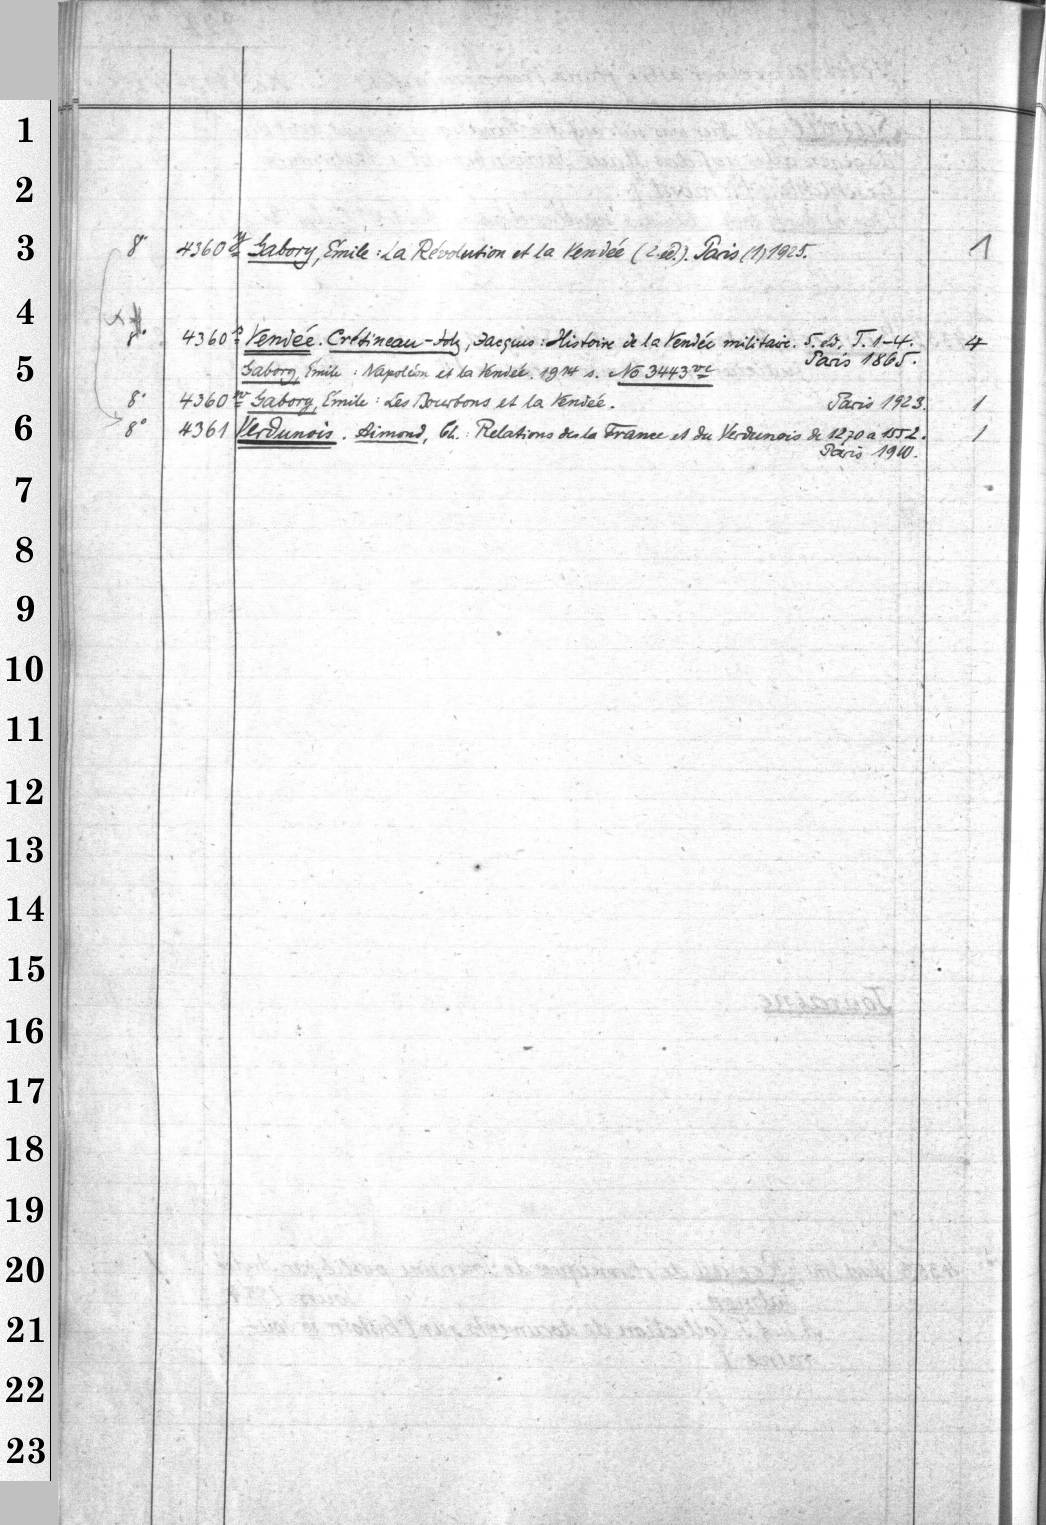 1
2
3 8° 4360 Gabory, Émile: La Révolution et la Vendée (2. éd.). Paris (1) 1925. 1
4
8° 4360 Vendée. Crétineau-Joly, Jacques: Histoire de la Vendée militaire. 5. éd. T. 1-4. 4
Paris 1865.
5 Gabory, Émile: Napoléon et la Vendée. 1914 s. No 3443
8° 4360 Gabory, Émile: Les Bourbons et la Vendée. Paris 1923. 1
6 8° 4361 Verdunois. Aimond, Ch.: Relations de la France et du Verdunois de 1270 a 1552. 1
Paris 1910.
7
8
9
10
11
12
13
14
15
16
17
18
19
20
21
22
23